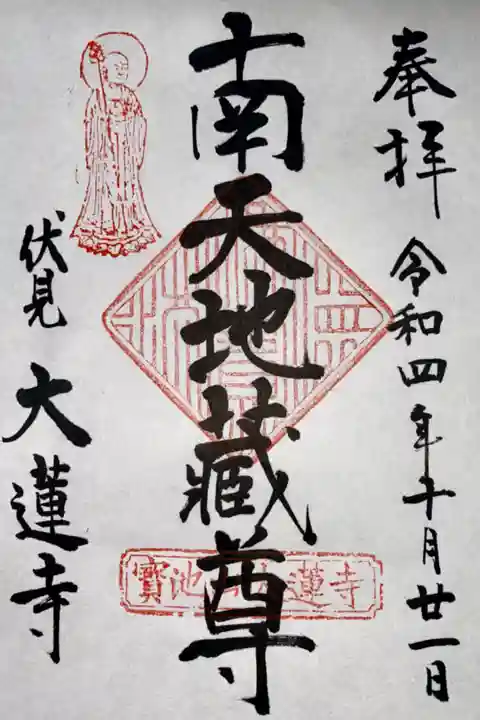 奉拝 令和四年十月廿一日
南天地蔵尊
伏見 大蓮寺
寳池 蓮寺